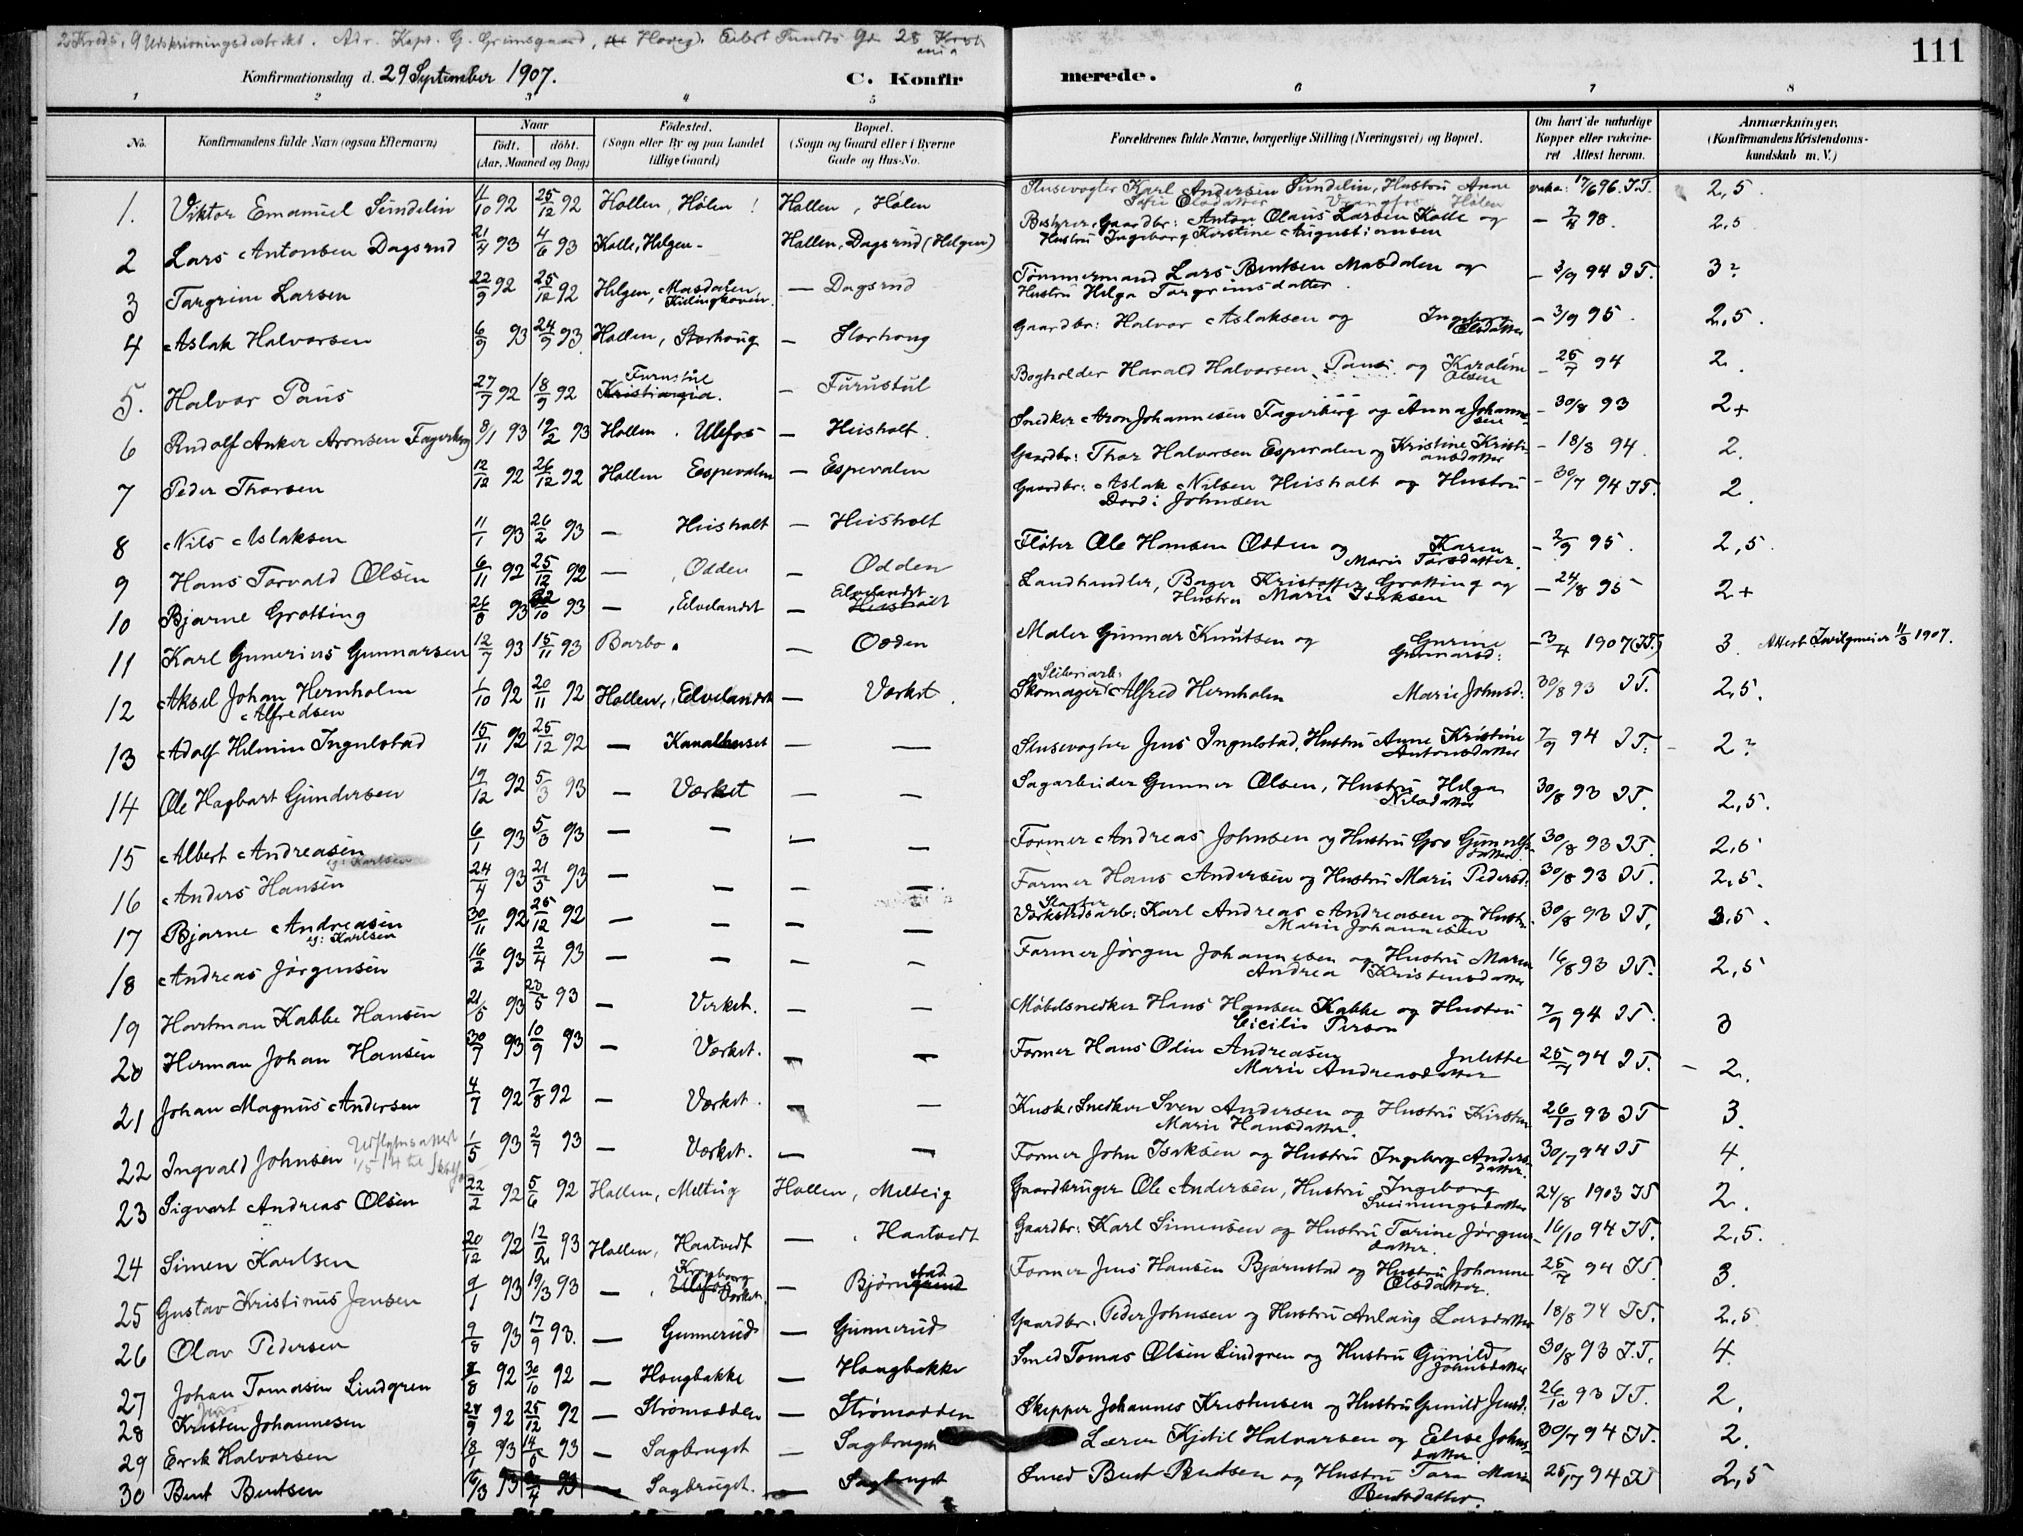 2 Kreds, 9 Utskrivningsdistrikt. Adr. Kapt. G. Grimsgaard, Hoveg. Eilert Sundts Gd. 28 Krist
ania
111
Konfirmationsdag d. 29 September 1907. C. Konfirmerede.
1 2 3 4 5 6 7 8
No. Konfirmandens fulde Navn (ogsaa Efternavn) Naar født. døbt. (Aar, Maaned og Dag) Fødested. (Sogn eller By og paa Landet tillige Gaard) Bopæl. (Sogn og Gaard eller i Byerne Gade og Hus-No. Forældrenes fulde Navne, borgerlige Stilling (Næringsvei) og Bopæl. Om havt de naturlige Kopper eller vakcineret Attest herom. Anmærkninger. (Konfirmandens Kristendomskundskab m. V.)
1. Viktor Emanuel Sundelin 4/10 92 25/12 92 Hollen, Hølen Hollen, Hølen Slusevogter Karl Andersen Sundelin, Hustru Anne Sofie Olsdatter Vrangfos, Hølen vakc: 17/6 96. I.T. 2,5.
2 Lars Antonsen Dagsrud 21/4 93 4/6 93 Kolle, Helgen - Hollen, Dagsrud (Helgen) Bestyrer, Gaardbr: Anton Olaus Larsen Kolle og Hustru Ingeborg Kirstine Augustionsen 98. 2,5
3 Targrim Larsen 22/9 92 25/12 92 Helgen, Masdalen, — Dagsrud Tømmermand Lars Bentsen Masdalen og Hustru Helga Torgrimsdatter — 3/9 94 I T. 3?
4 Aslak Halvorsen 6/9 93 24/9 93 Hollen, Storhoug — Storhoug Gaardbr: Halvor Aslaksen og Ingeborg Olsdatter — 3/9 95. 2,5.
5. Halvor Paus 27/7 92 18/9 92 Furustul Kristiania. — Furustul Bogholder Harald Halvorsen Paus og Karoline Olsen — 25/7 94 2
6 Rudolf Anker Aronsen Fagerberg 8/1 93 19/2 93 Hollen. Ulefos — Heisholt. Snedker Aron Johannesen Fagerberg og Anna Johannesen — 30/8 93 2+
7 Peder Thorsen 12/12 92 26/12 92 Hollen Espevalen — Espevalen Gaardbr: Thor Halvorsen Espevalen og Kristine Kristiansdatter — 18/8 94. 2.
8 Nils Aslaksen 11/1 93 26/2 93 — Heisholt — Heisholt Gaardbr: Aslak Nilsen Heisholt og Hustru Dordi Johnsen — 30/7 94 I T. 2.
9 Hans Torvald Olsen 6/11 92 25/12 92 — , Odden — Odden Fløter Ole Hansen Odden og Karen Marie Torsdatter. — 2/9 95. 2,5.
10 Bjarne Grotting 26/8 93 22/10 93 — , Eilvelandst — Eilvelandst Heisholt Landhandler, Bager Kristoffer Grotting og Hustru Marie Isaksen — 24/8 95 2+
11 Karl Gunerius Gunnarsen 12/7 93 15/11 93 Barbo. — Odden Maler Gunnar Knutsen og Gurine Gunnarsd: — 3/4 1907 (I T.) 3. Attest 11/3 1907.
12 Aksel Johan Hernholm Alfredsen 1/10 92 20/11 92 Hollen, Eilvelandst — Værket. Sliberiarb. Skomager Alfred Hernholm Marie Johnsd: 30/8 93 I T. 2,5.
13 Adolf Hilmin Ingulstad 15/11 92 25/12 92 — Kanalhuset — — Slusevogter Jens Ingulstad, Hustru Anne Kristine Antonsdatter 7/9 94 I T. - 2?
14 Ole Hagbart Gundersen 19/12 92 5/3 93 — Værket — — Sagarbeider Gunner Olsen, Hustru Helga Nilsdatter 30/8 93 I T. 2,5.
15 Albert Andreasen 6/1 93 5/3 93 — — — — Former Andreas Johnsen og Hustru Gro Gunulfsdatter 30/8 93 I T. 2,5
16 Anders Hansen 24/4 93 21/5 93 — — — — Former Hans Andersen og Hustru Marie Pedersd: 30/8 93 I T. 2,5.
17 Bjarne Andreasen eg: Karlsen 30/11 92 25/12 92 — — — — Værkstedsarb: Karl Andreas Andreasen og Hustr. Marie Johannesen 30/8 93 I T. 3,5.
18 Andreas Jørgensen 16/2 93 2/4 93 — — — — Former Jørgen Johannesen og Hustru Maren Andrea Kristensdatter 16/8 93 I T. 2,5
19 Hartman Kabbe Hansen 21/5 93 5 93 — Verket. — — Møbelsnedker Hans Hansen Kabbe og Hustru Cicilie Person 7/9 94 I T. 3
20 Herman Johan Hansen 30/7 93 10/9 93 — Værket. — — Former Hans Odin Andreasen Julette Marie Andreasdatter 25/7 94 I T. - 2.
21 Johan Magnus Andersen 4/7 92 7/8 92 — Værket. — — Kusk, Snedker Sven Andersen og Hustru Kirsten Marie Hansdatter. 26/10 93 I T 3.
22 Ingvald Johnsen 1/5 93 2/7 93 — Værket. — — Former John Isaksen og Hustru Ingeborg Andersdatter. 30/7 94 I T 4.
23 Sigvart Andreas Olsen 22/2 92 5/6 92 Hollen, Melteig Hollen, Melteig Gaardbruger Ole Andersen, Hustru Ingeborg Sveinungsdatter 24/8 1903 I T 2.
24 Simen Karlsen 20/12 92 12/2 93 Hollen, Haatvedt — , Haatvedt Gaardbr: Karl Simensen og Hustru Torine Jørgensdatter. 16/10 94 I T. 2,5.
25 Gustav Kristinus Jensen 9/1 93 19/3 93 — Kronborg Ulefos Værket. — Bjørnstad Former Jens Hansen Bjørnstad og Hustru Johanne Olsdatter. 25/7 94 I T. 3.
26 Olav Pedersen 9/8 93 17/9 93. — Gunnerud — Gunnerud Gaardbr. Peder Johnsen og Hustru Anlaug Larsdatter 18/8 94 I T. 2,5
27 Johan Tomasen Lindgren 8 92 30/10 92 — Hougbakke — Hougbakke Smed Tomas Olsen Lindgren og Hustru Gunild Johnsdatter 30/8 93 I.T. 4.
28 Jens Kristen Johannesen 24/9 92 25/12 92 — Strømodden — Strømodden Skipper Johannes Kristensen og Hustru Gunild Jensd: 26/10 93 I T. 2.
29 Erik Halvorsen 13/1 93 14 93 — Sagbruget — Sagbruget Lærer Kjetil Halvorsen og Elise Johnsdatter 30/7 94 I T. 2.
30 Bent Bentsen 6/3 93 93 — Sagbruget. — Sagbruget Smed Bent Bentsen og Hustru Tora Marie Bentsdatter. 25/7 94 I T 2,5